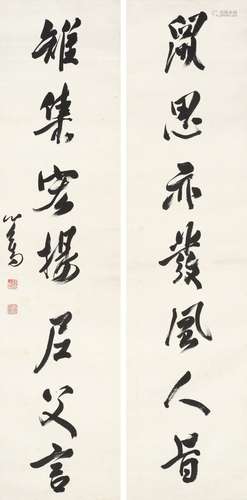 思亦發風人旨
雅集揚尼父言
心畬